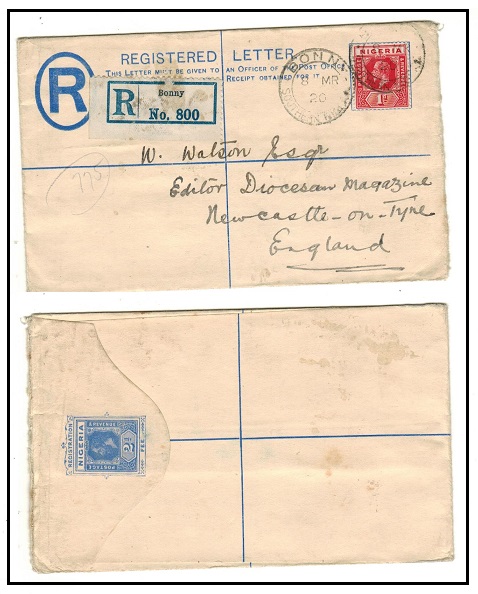 REGISTERED LETTER
THIS LETTER MUST BE GIVEN TO AN OFFICER OF THE POST OFFICE
RECEIPT OBTAINED FOR IT
R
R
Bonny
No. 800
BONNY
8 MR
20
NIGERIA
1d
775
W. Watson Esqr
Editor Diocesan Magazine
Newcastle-on-Tyne
England
REGISTRATION
NIGERIA
POSTAGE
REVENUE
2d
FEE